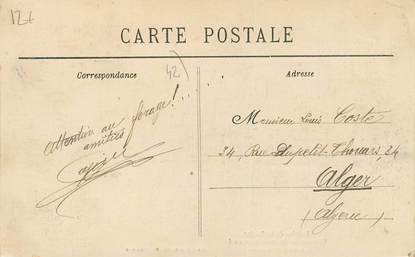 12+
CARTE POSTALE
Correspondance
42)
Adresse
Attention au forage!
amitiés
Monsieur Louis Coste
34, Rue Dupetit-Thouars, 34
Alger
(Algérie)